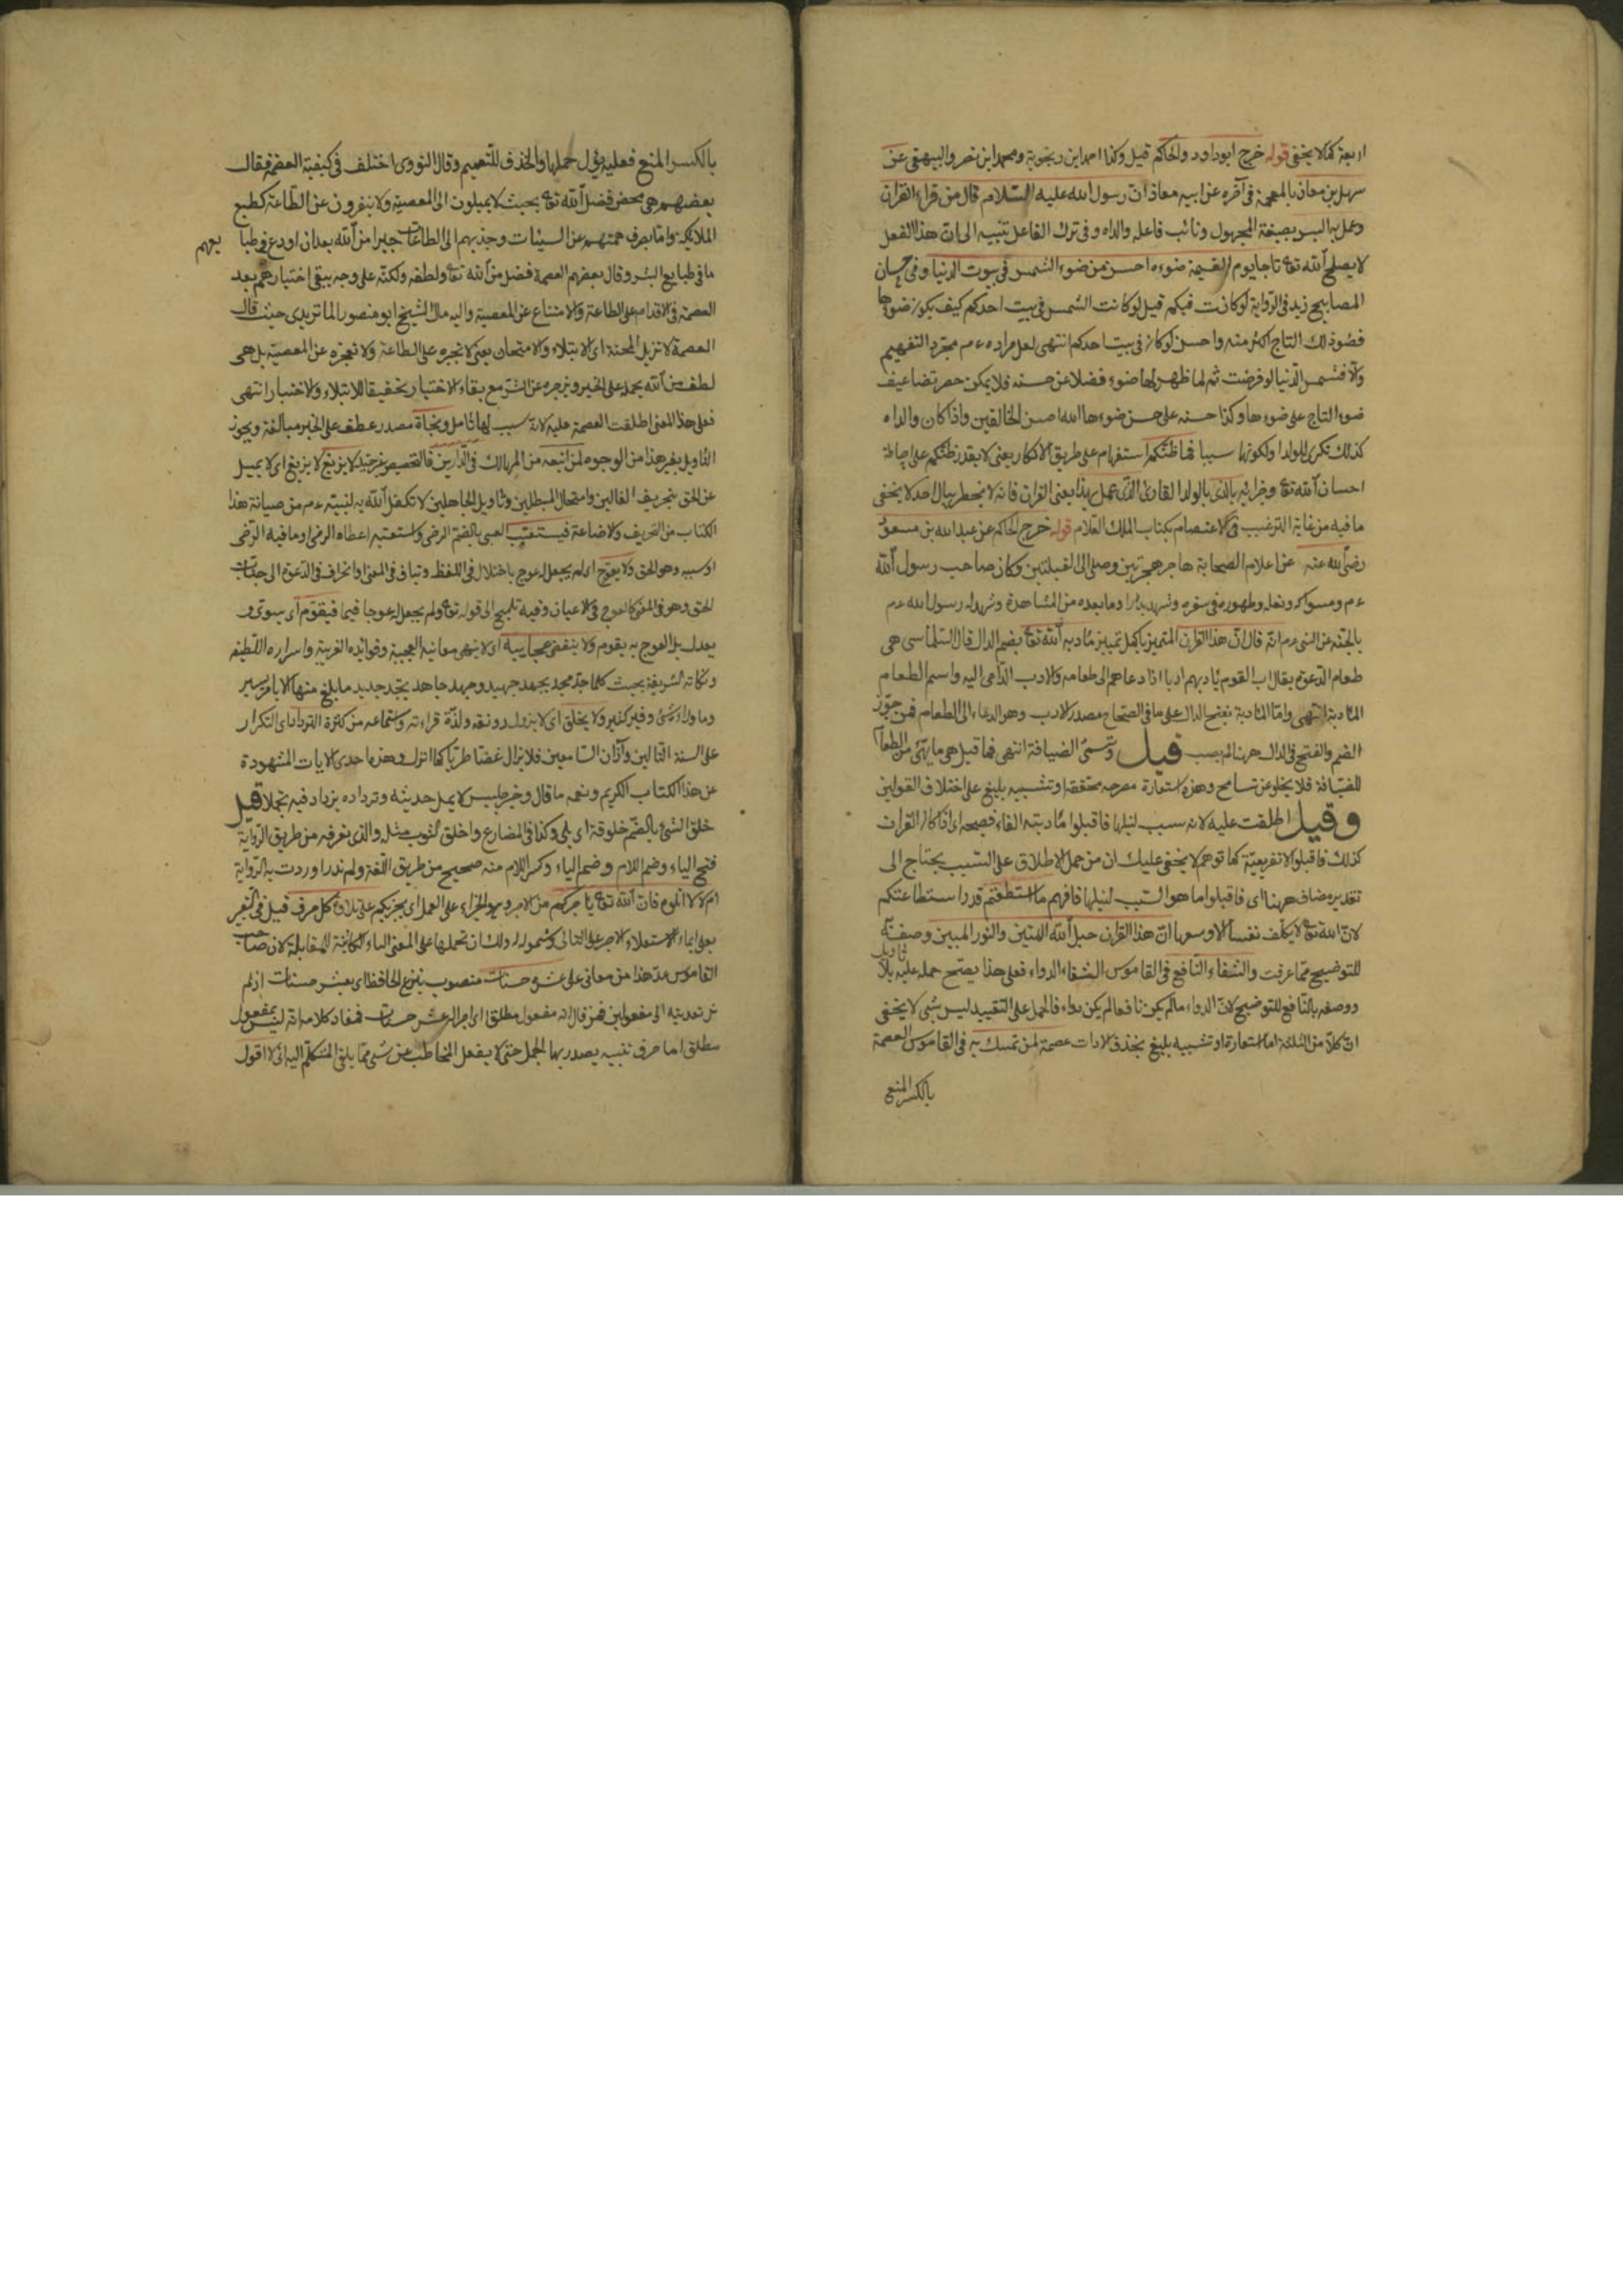 اربعة كما لا يخفى قوله خرج ابو داود والحاكم قيل وكذا احمد ابن زنجوية ومحمد ابن نصر والبيهقى عن
سهل بن معاذ بالمعجمة فى آخره عن ابيه معاذ ان رسول الله عليه السلام قال من قراء القران
وعمل به البس بصيغة المجهول ونائب فاعله والداه وفى ترك الفاعل تنبيه الى ان هذا الفعل
لا يصلح الله تعا تاجا يوم القيمة ضوءه احسن من ضوء الشمس فى بيوت الدنيا وفى
المصابيح زيد فى الرواية لو كانت فيكم قيل لو كانت الشمس فى بيت احدكم كيف يكون ضوءها
فضوء ذلك التاج اكثر منه واحسن لو كان فى بيت احدكم انتهى لعل مراده ءم مجرد التفهيم
والا فشمس الدنيا لو فرضت ثم لما ظهر لها ضوء فضلا عن حسنه فلا يمكن حصر تضاعيف
ضوء التاج على ضوءها وكذا حسنه على حسن ضوءها الله احسن الخالقين واذا كان والداه
كذلك تكرى للولد او لكونها سببا فما ظنكم استفهام على طريق الانكار يعنى لا يقدر ظنكم على احاطة
احسان الله تعا وخزائنه بالذى بالولد القارئ الذى عمل بهذا يعنى القران فانه لا يخطر ببال احد لا يخفى
ما فيه من غاية الترغيب فى الاعتصام بكتاب الملك العلام قوله خرج الحاكم عن عبد الله بن مسعود
رضى الله عنه عن اعلام الصحابة هاجر هجرتين وصلى الى القبلتين وكان صاحب رسول الله
ءم ومسواكه ونعله وطهوره فى سفره وشهد بدرا وما بعده من المشاهدة وشهد له رسول الله ءم
بالجنة عن النبى ءم انه قال ان هذا القران المتميز باكمل تمييز مأدبة الله تعا بضم الدال قال السلماسى هى
طعام الدعوة يقال ادب القوم يأدبهم ادبا اذا دعاهم الى طعامه والادب الداعى اليه واسم الطعام
المأدبة انتهى واما المأدبة بفتح الدال على ما فى الصحاح مصدر الادب وهو الدعاء الى الطعام فمن جوز
الضم والفتح فى الدال ههنا لم يصب قيل وتسمى الضيافة انتهى فما قيل هى ما يهيئ من الطعام
للضيافة فلا يخلو عن تسامح وهذه استعارة مصرحه محققة او تشبيه بليغ على اختلاف القولين
وقيل اطلقت عليه لانه سبب لنيلها فاقبلوا مأدبته الفاء فصيحة اى اذا كان القران
كذلك فاقبلوا لا تفريعية كما توهم لا يخفى عليك ان من حمل الاطلاق على السبب يحتاج الى
تقدير مضاف ههنا اى فاقبلوا ما هو السبب لنيلها فافهم ما استطعتم قدر استطاعتكم
لان الله تعا لا يكلف نفسا الا وسعها ان هذا القران حبل الله المتين والنور المبين وصفته
للتوضيح مما عرفت والشفاء النافع فى القاموس الشفاء الدواء فعلى هذا يصح حمله عليه بلا تأويل
ووصفه بالنافع للتوضيح لان الدواء ما لم يكن نافعا لم يكن دواء فالحمل على التقييد ليس بشئ لا يخفى
ان كلا من الثلثة اما استعارة او تشبيه بليغ بحذف الادات عصمة لمن تمسك به فى القاموس العصمة
بالكسر المنع
بالكسر المنع فعليه يؤل حملها والحذف للتعميم وقال النووى اختلف فى كيفية العصمة فقال
بعضهم هى محض فضل الله تعا بحيث لا يميلون الى المعصية ولا ينفرون عن الطاعة كطبع
الملائكة واما بصرف همتهم عن السيئات وجذبهم الى الطاعات جبرا من الله بعد ان اودع فى طبا يعهم
ما فى طبايع البشر وقال بعضهم العصمة فضل من الله تعا ولطفه ولكنه على وجه يبقى اختيارهم بعد
العصمة فى الاقدام على الطاعة والامتناع عن المعصية واليه مال الشيخ ابو منصور الماتريدى حيث قال
العصمة لا تزيل المحنة اى الابتلاء والامتحان يعنى لا تجبره على الطاعة ولا تعجزه عن المعصية بل هى
لطف من الله يحمله على الخير ويزجره عن الشر مع بقاء الاختيار تحقيقا للابتلاء والاختبار انتهى
فعلى هذا المعنى اطلقت العصمة عليه لانه سبب لها تأمل ونجاة مصدر عطف على الخبر مبالغة ويجوز
التأويل بغير هذا من الوجوه لمن اتبعه من المهالك فى الدارين فالتخصيص غير جيد لا يزيغ لا يزيغ اى لا يميل
عن الحق بتحريف الغالين وانتحال المبطلين وتأويل الجاهلين لا تكفل الله به لنبيه ءم من صيانة هذا
الكتاب من التحريف والاضاعة فيستعتب العتبى بالضم الرضى واستعتبه اعطاه الرضى او ما فيه الرضى
او سببه وهو الحق ولا يعوج اى لم يجعل له عوج باختلال فى اللفظ وتناف فى المعنى او انحراف فى الدعوة الى جناب
الحق وهو فى المعنى كالعوج فى الاعيان وفيه تلميح الى قوله تعا ولم يجعل له عوجا قيما فيقوم اى يسوى و
يعدل بل العوج به يقوم ولا ينقضى عجايبه اى لا ينتهى معانيه العجيبة وفوائده الغريبة واسراره اللطيفه
ونكاته الشريفة بحيث كلما جد مجد بجهد جهيد وجهد جاهد يتجدد جديد ما بلغ منها الا بامر يسير
وما وراءه شئ وفير كثير ولا يخلق اى لا يزول رونقه ولذة قراءته واستماعه من كثرة الترداد اى التكرار
على السنة التالين وآذان السامعين فلا يزال غضا طريا كما انزل وهذه احدى الايات المشهودة
عن هذا الكتاب الكريم ونعم ما قال وخير جليس لا يمل حديثه وترداده يزداد فيه تجملا قيل
خلق الشئ بالضم خلوقة اى بلى وكذا فى المضارع واخلق الثوب مثله والذى نعرفه من طريق الرواية
فتح الياء وضم اللام وضم الياء وكسر اللام منه صحيح من طريق اللغة ولم ندر اوردت به الرواية
ام لا اتلوه فان الله تعا يأجركم من الاجر وهو الجزاء على العمل اى يجزيكم على تلاوة كل حرف قيل فى التعبير
بعلى ايماء لاستعلاء الاجر على التالى وشموله له ولك ان تحملها على المعنى الباء الكائنة للمقابلة لان صاحب
القاموس عد هذا من معانى على عشر حسنات منصوب بنزع الخافظ اى بعشر حسنات اذ لم
نر تعديته الى مفعولين فمن قال انه مفعول مطلق اى اجر عشر حسنات فمفاد كلامه انه ليس بمفعول
مطلق اما حرف تنبيه يصدر بها الجمل حتى لا يغفل المخاطب عن شئ مما يلقى المتكلم اليه انى لا اقول